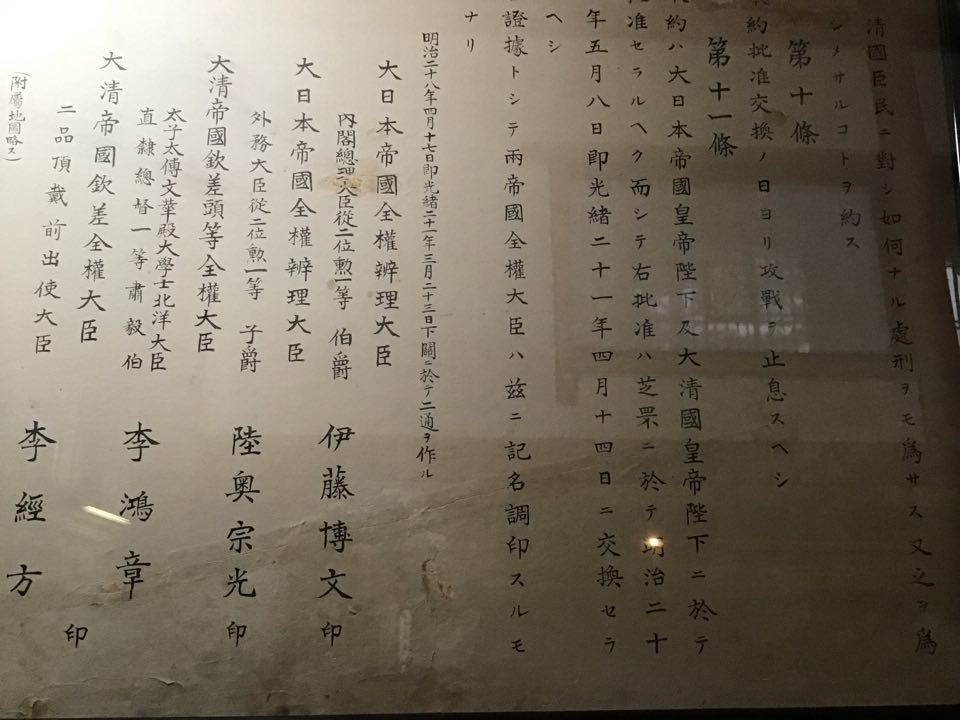 清國臣民ニ對シ如何ナル處刑ヲモ爲サス又之ヲ爲
シメサルコトヲ約ス
第十條
約批准交換ノ日ヨリ攻戰ヲ止息スヘシ
第十一條
約ハ大日本帝國皇帝陛下及大清國皇帝陛下ニ於テ
准セラルヘク而シテ右批准ハ芝罘ニ於テ明治二十
年五月八日即光緒二十一年四月十四日ニ交換セラ
ヘシ
證據トシテ兩帝國全權大臣ハ茲ニ記名調印スルモ
ナリ
明治二十八年四月十七日即光緒二十一年三月二十三日下關ニ於テ二通ヲ作ル
大日本帝國全權辨理大臣
內閣總理大臣從二位勲一等 伯爵 伊藤博文 印
大日本帝國全權辨理大臣
外務大臣從二位勲一等 子爵 陸奥宗光 印
大清帝國欽差頭等全權大臣
太子太傅文華殿大學士北洋大臣
直隸總督一等肅毅伯 李鴻章
大清帝國欽差全權大臣
二品頂戴前出使大臣 李經方 印
(附屬地圖略ス)